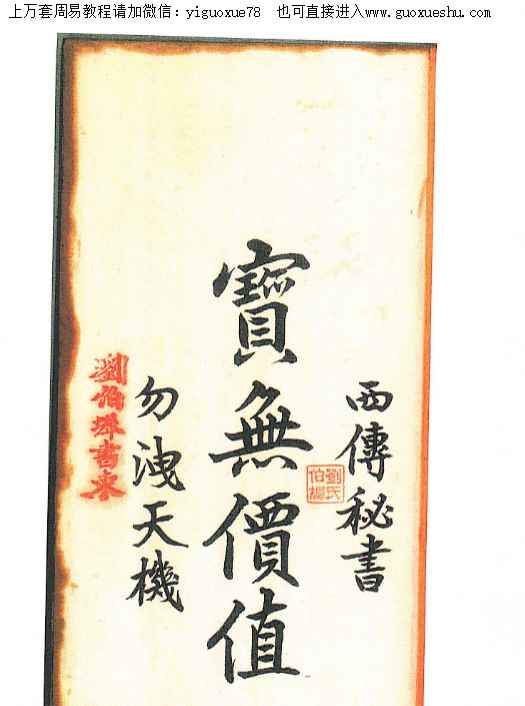 上万套周易教程请加微信：yiguoxue78 也可直接进入www.guoxueshu.com
西傳秘書
劉氏伯
寶無價值
勿洩天機
劉伯
書束